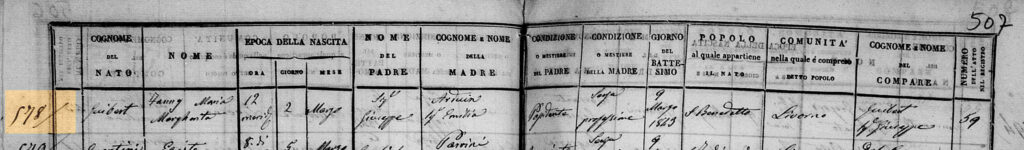 507
COGNOME DEL NATO
NOME
EPOCA DELLA NASCITA
ORA GIORNO MESE
NOME DEL PADRE
COGNOME e NOME DELLA MADRE
CONDIZIONE O MESTIERE DEL PADRE
CONDIZIONE O MESTIERE DELLA MADRE
GIORNO DEL BATTESIMO
POPOLO al quale appartiene IL NATO
COMUNITA' nella quale è compreso DETTO POPOLO
COGNOME e NOME DEL COMPARE
NUMERO DELL'ATTO NEL REGISTRO
578
Guibert
Fanny Maria
Margherita
12
merid.
2
Marzo
Giuseppe
Arduin
Emilia
Possidente
Senza
professione
9
Marzo
1843
S. Benedetto
Livorno
Guibert
Giuseppe
59